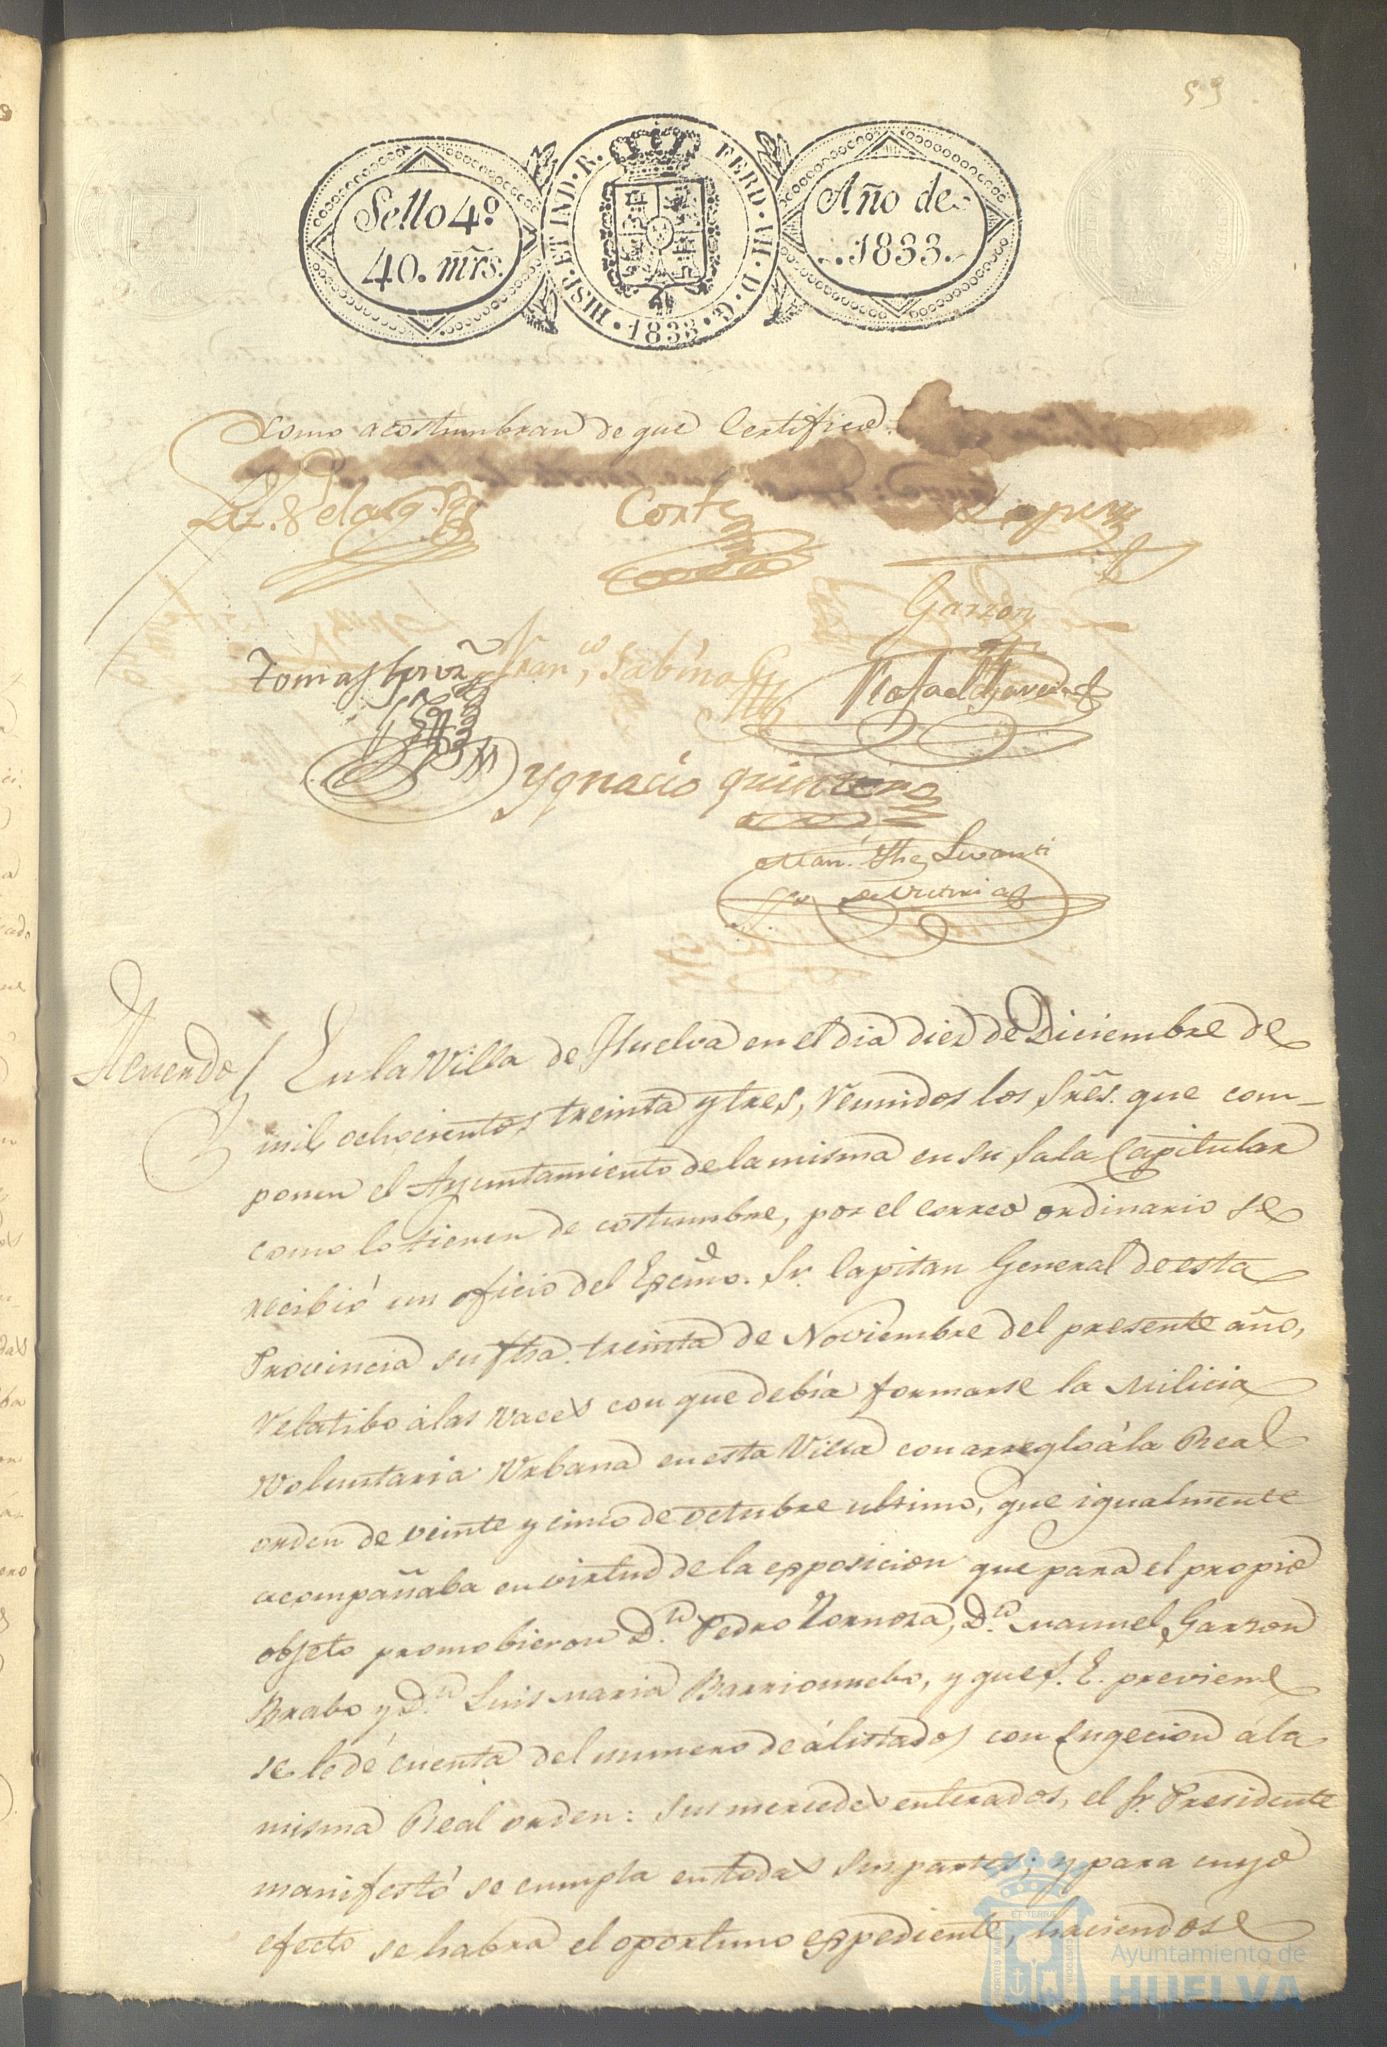 59
Sello 4º
40. mrs.
HISP. ET IND. R. FERD. VII. D. G. 1833
Año de
1833.
como acostumbran de que Certifico.
Corte
Lopez
Garzon
Tomas
Franco Sabino
Rafael
Ygnacio quintero
Acuerdo / En la Villa de Huelva en el dia diez de Diciembre de
mil ochocientos treinta y tres, reunidos los Sres. que com-
ponen el Ayuntamiento de la misma en su Sala Capitular
como lo tienen de costumbre, por el correo ordinario se
recibió un oficio del Excmo. Sr. Capitan General de esta
Provincia su fha. treinta de Noviembre del presente año,
relatibo á las vaces con que debía formarse la Milicia
Voluntaria Urbana en esta Villa con arreglo á la Real
orden de veinte y cinco de octubre ultimo, que igualmente
acompañaba en virtud de la exposicion que para el propio
objeto promobieron Dn. Pedro Zornosa, Dn. Manuel Garzon
Brabo y Dn. Luis Maria Barrionuebo, y que S. E. previene
se le dé cuenta del numero de álistados con sugecion á la
misma Real orden: Sus mercedes enterados, el Sr. Presidente
manifestó se cumpla en todas sus partes; y para cuyo
efecto se habra el oportuno expediente, haciendose
Ayuntamiento de
HUELVA